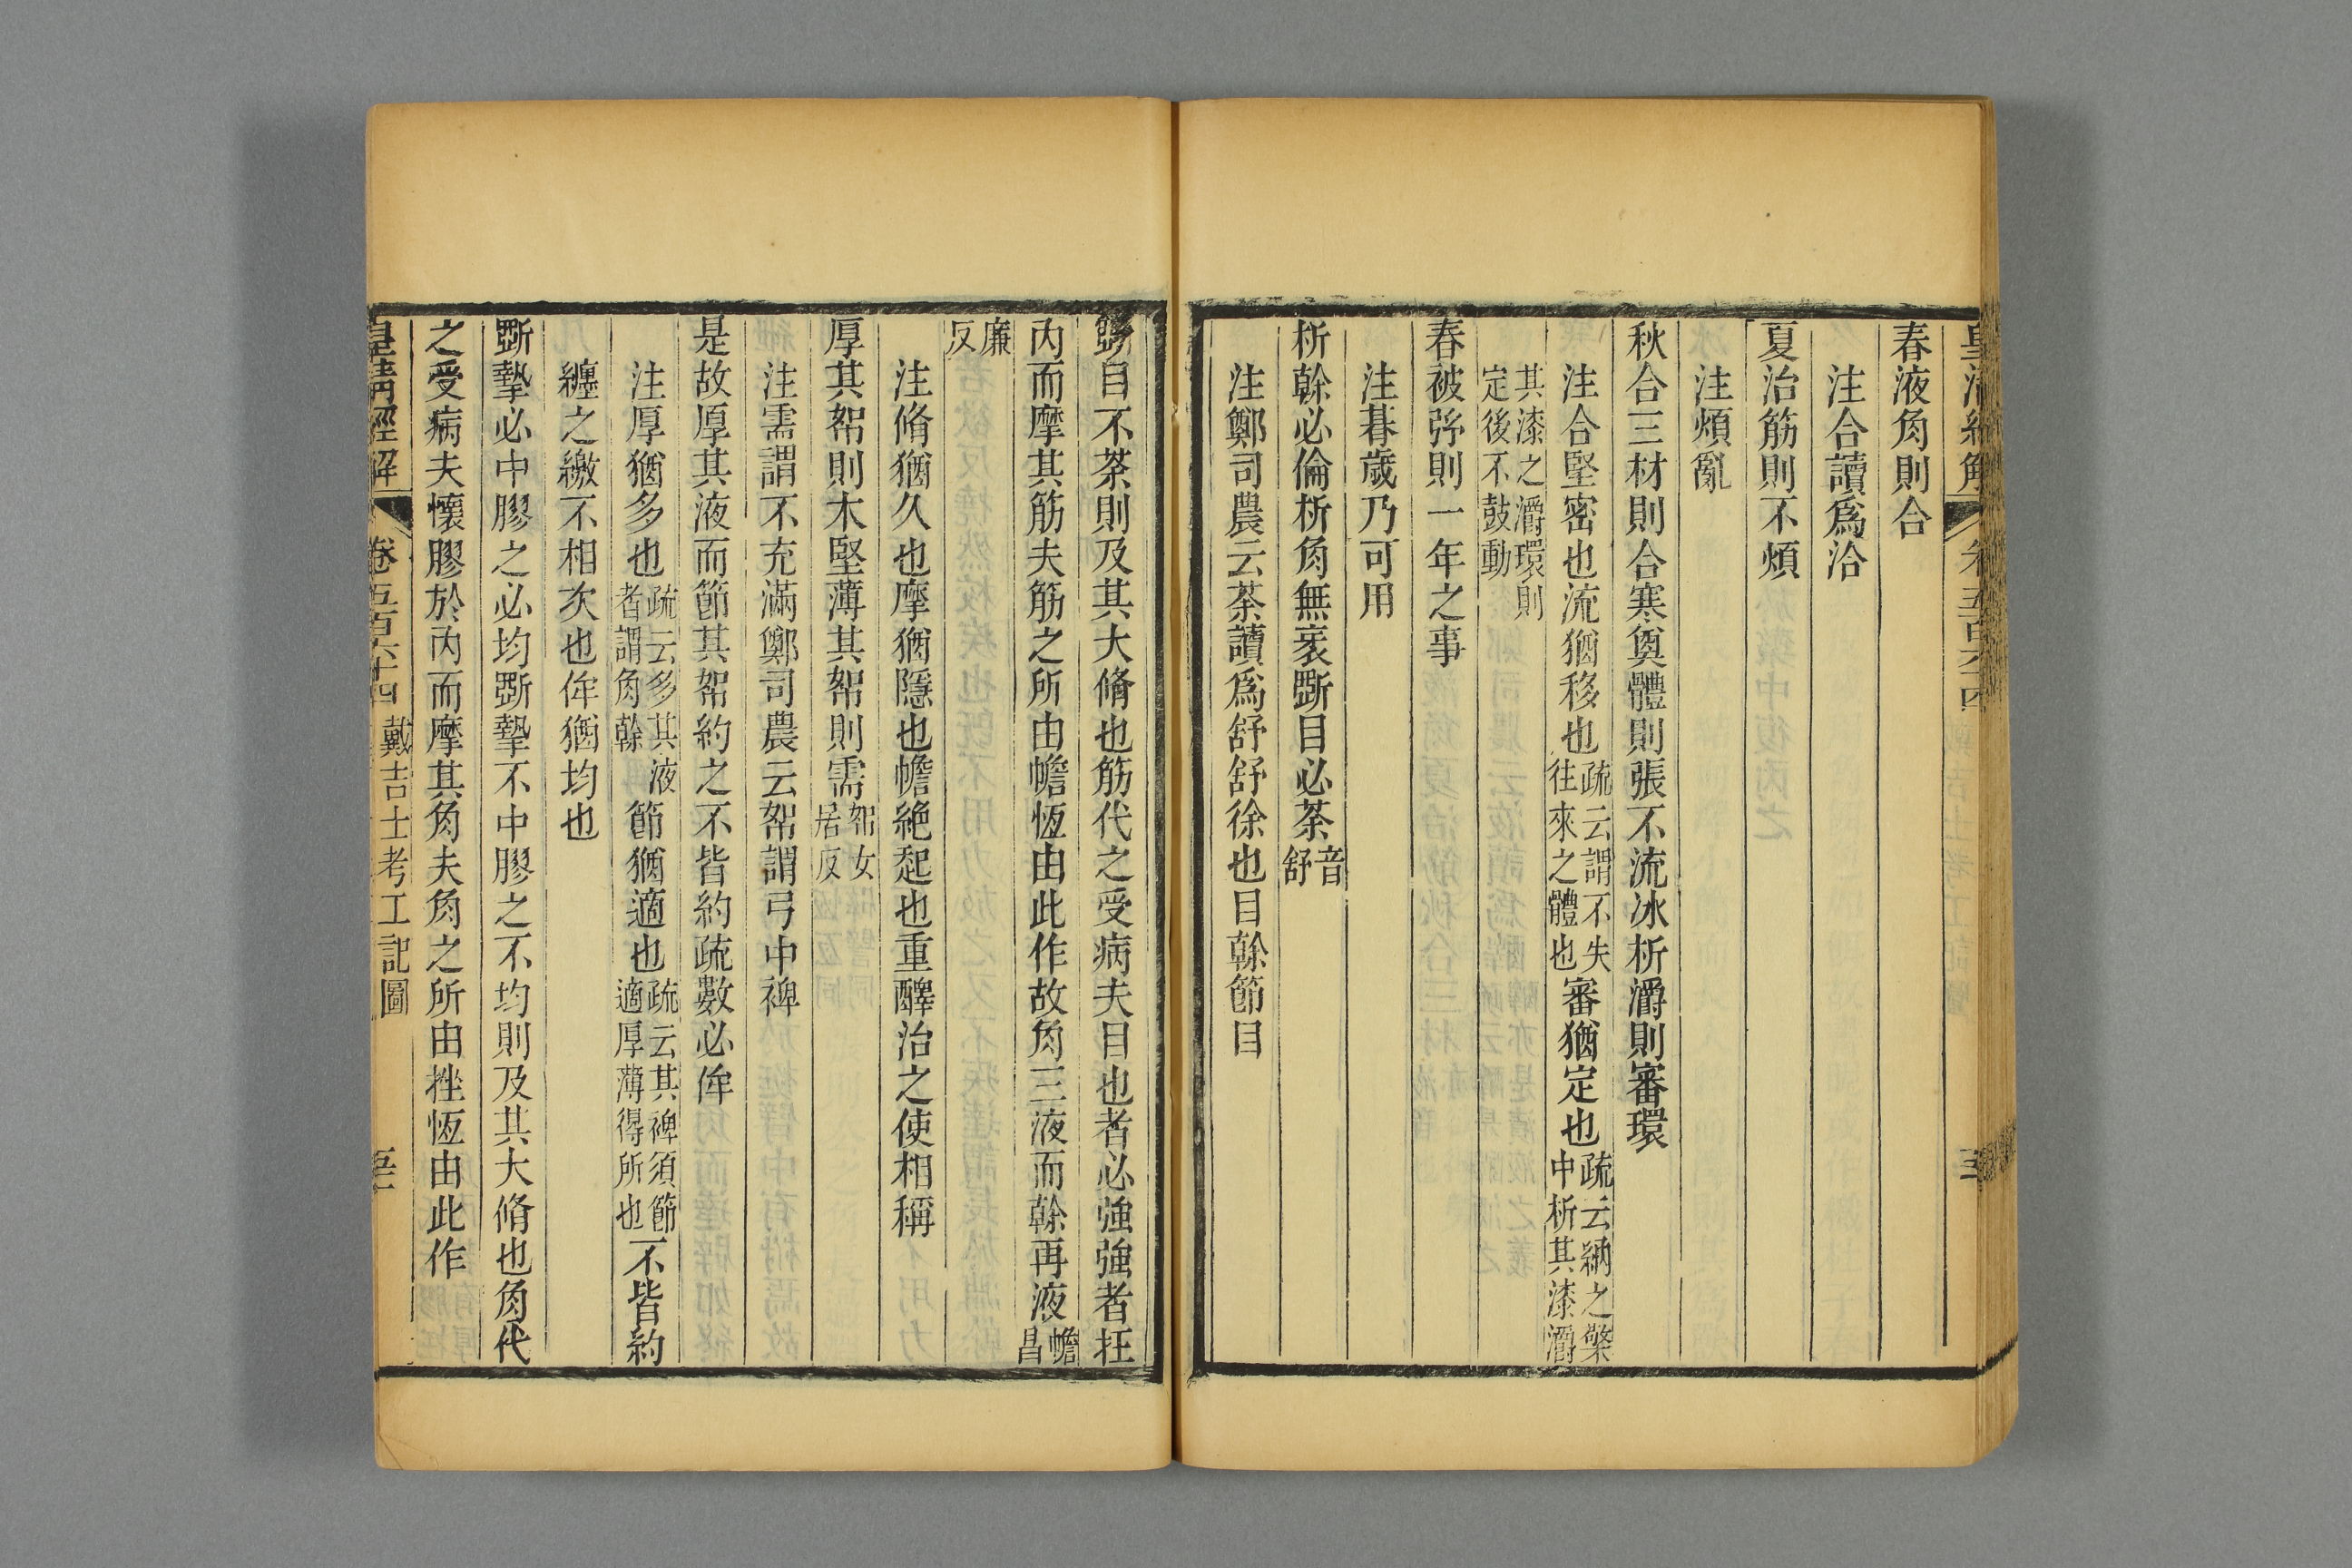 皇清經解
卷五百六十四
春液角則合
注合讀爲洽
夏治筋則不煩
注煩亂
秋合三材則合寒奠體則張不流冰析灂則審環
注合堅密也流猶移也疏云謂不失往來之體也審猶定也疏云納之檠中析其漆灂
其漆之灂環則定後不鼓動
春被弜則一年之事
注朞歲乃可用
析榦必倫析角無衺斲目必荼音舒
注鄭司農云荼讀爲舒舒徐也目榦節目
斲目不荼則及其大脩也筋代之受病夫目也者必強強者在
內而摩其筋夫筋之所由幨恆由此作故角三液而榦再液幨昌
廉反
注脩猶久也摩猶隱也幨絕起也重醳治之使相稱
厚其帤則木堅薄其帤則需帤女居反
注需謂不充滿鄭司農云帤謂弓中裨
是故厚其液而節其帤約之不皆約疏數必侔
注厚猶多也疏云多其液者謂角榦節猶適也疏云其裨須節適厚薄得所也不皆約
纏之繳不相次也侔猶均也
斲摯必中膠之必均斲摯不中膠之不均則及其大脩也角代
之受病夫懷膠於內而摩其角夫角之所由挫恆由此作
皇清經解 卷五百六十四 戴吉士考工記圖